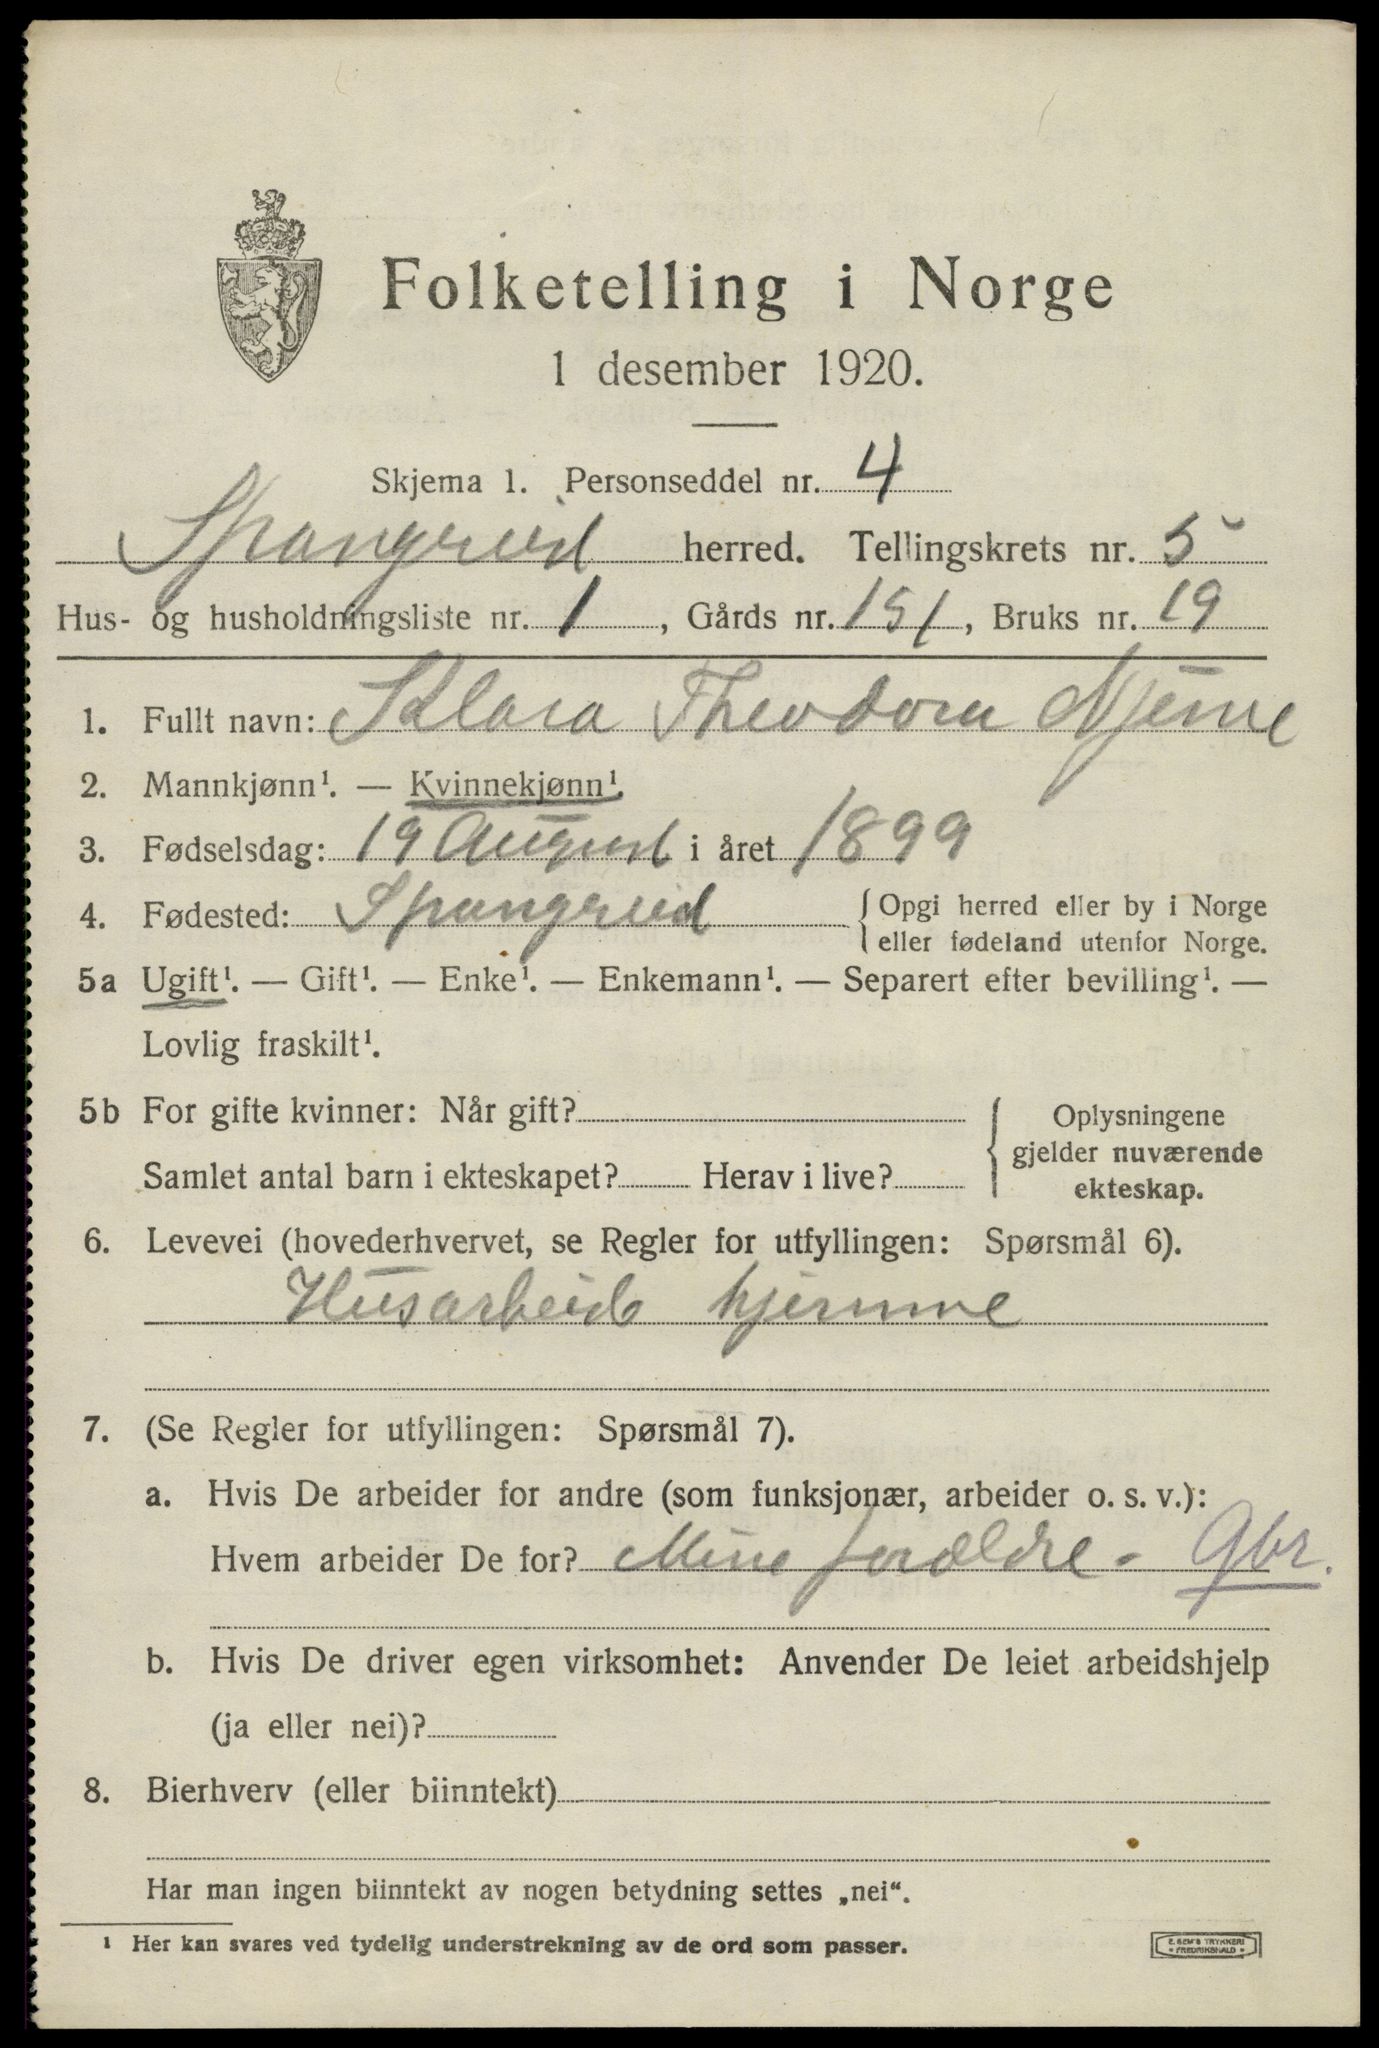 Folketelling i Norge
1 desember 1920.
Skjema 1. Personseddel nr. 4
Spangreid herred. Tellingskrets nr. 5
Hus- og husholdningsliste nr. 1, Gårds nr. 151, Bruks nr. 19
1. Fullt navn: Klara Theodora Njerve
2. Mannkjønn¹. — Kvinnekjønn¹.
3. Fødselsdag: 19 August i året 1899
4. Fødested: Spangreid { Opgi herred eller by i Norge
eller fødeland utenfor Norge.
5a Ugift¹. — Gift¹. — Enke¹. — Enkemann¹. — Separert efter bevilling¹. —
Lovlig fraskilt¹.
5b For gifte kvinner: Når gift?
Samlet antal barn i ekteskapet? Herav i live?
Oplysningene
gjelder nuværende
ekteskap.
6. Levevei (hovederhvervet, se Regler for utfyllingen: Spørsmål 6).
Husarbeide hjemme
7. (Se Regler for utfyllingen: Spørsmål 7).
a. Hvis De arbeider for andre (som funksjonær, arbeider o. s. v.):
Hvem arbeider De for? Mine forældre - Gbr.
b. Hvis De driver egen virksomhet: Anvender De leiet arbeidshjelp
(ja eller nei)?
8. Bierhverv (eller biinntekt)
Har man ingen biinntekt av nogen betydning settes „nei“.
¹ Her kan svares ved tydelig understrekning av de ord som passer.
E. SEM'S TRYKKERI
FREDRIKSHALD